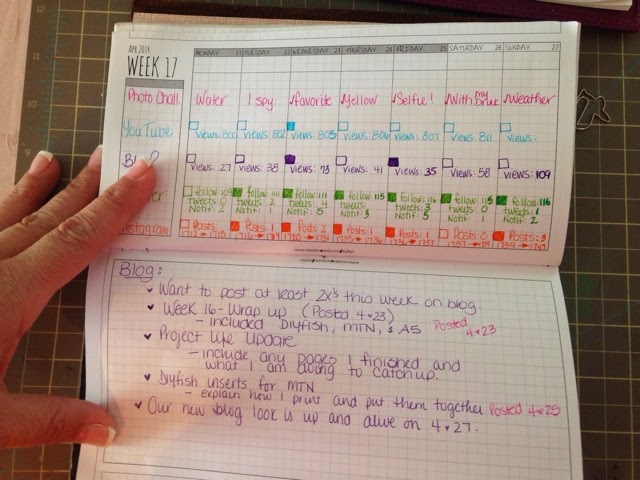 APR 2014
WEEK 17
MONDAY 21 TUESDAY 22 WEDNESDAY 23 THURSDAY 24 FRIDAY 25 SATURDAY 26 SUNDAY 27
Photo Chall. Water I spy. √favorite √Yellow √Selfie! √With my drink √Weather
YouTube Views: 800 Views: 802 Views: 805 Views: 806 Views: 807 Views: 811 Views:
Views: 27 Views: 38 Views: 73 Views: 41 Views: 35 Views: 58 Views: 109
follow: 109 follow: 110 follow: 111 follow: 115 follow: 116 follow: 115 follow: 116
tweets: 0 tweets: 2 tweets: 4 tweets: tweets: 3 tweets: 0 tweets: 1
Notif: 2 Notif: 1 Notif: 5 Notif: Notif: 5 Notif: 1 Notif: 2
Instagram Posts: Posts: 1 Posts: 2 Posts: 1 Posts: 1 Posts: 0 Posts:
Blog:
Want to post at least 2x's this week on blog.
Week 16 - Wrap up (Posted 4♥23)
- included Diyfish, MTN, & A5 Posted 4♥23
Project Life Update
- include any pages I finished and
what I am doing to catch up.
Diyfish inserts for MTN
- explain how I print and put them together Posted 4♥25
Our new blog look is up and alive on 4♥27.